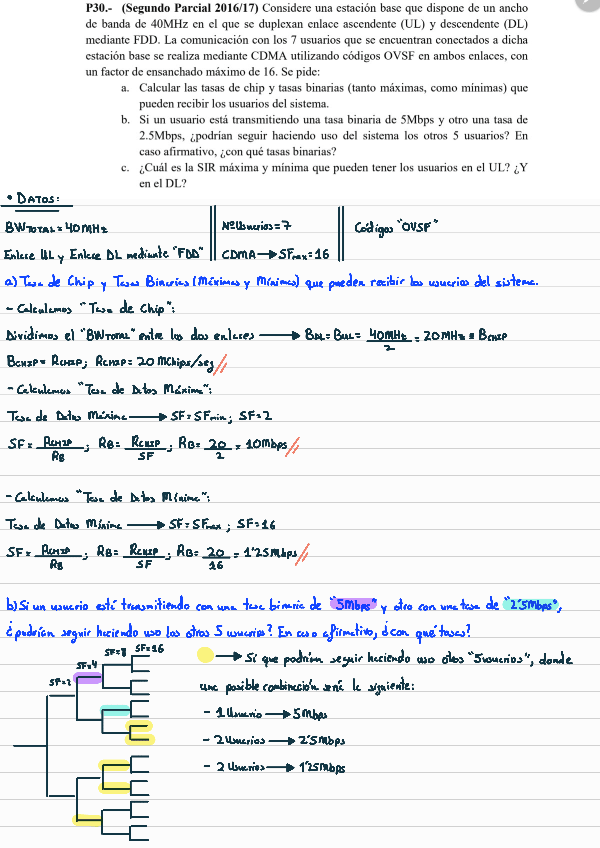 P30.- (Segundo Parcial 2016/17) Considere una estación base que dispone de un ancho
de banda de 40MHz en el que se duplexan enlace ascendente (UL) y descendente (DL)
mediante FDD. La comunicación con los 7 usuarios que se encuentran conectados a dicha
estación base se realiza mediante CDMA utilizando códigos OVSF en ambos enlaces, con
un factor de ensanchado máximo de 16. Se pide:
a. Calcular las tasas de chip y tasas binarias (tanto máximas, como mínimas) que
pueden recibir los usuarios del sistema.
b. Si un usuario está transmitiendo una tasa binaria de 5Mbps y otro una tasa de
2.5Mbps, ¿podrían seguir haciendo uso del sistema los otros 5 usuarios? En
caso afirmativo, ¿con qué tasas binarias?
c. ¿Cuál es la SIR máxima y mínima que pueden tener los usuarios en el UL? ¿Y
en el DL?
• DATOS:
BWTOTAL = 40MHz Nº Usuarios = 7 Códigos "OVSF"
Enlace UL y Enlace DL mediante "FDD" CDMA → SFmax = 16
a) Tasa de Chip y Tasas Binarias (Máximas y Mínimas) que pueden recibir los usuarios del sistema.
- Calculamos "Tasa de Chip":
Dividimos el "BWTOTAL" entre los dos enlaces → BDL = BUL = 40MHz / 2 = 20MHz ≡ BCHIP
BCHIP = RCHIP; RCHIP = 20 MChips/seg //
- Calculamos "Tasa de Datos Máxima":
Tasa de Datos Máxima → SF = SFmin; SF = 2
SF = RCHIP / RB; RB = RCHIP / SF; RB = 20 / 2 = 10Mbps //
- Calculamos "Tasa de Datos Mínima":
Tasa de Datos Mínima → SF = SFmax; SF = 16
SF = RCHIP / RB; RB = RCHIP / SF; RB = 20 / 16 = 1'25Mbps //
b) Si un usuario está transmitiendo con una tasa binaria de "5Mbps" y otro con una tasa de "2'5Mbps",
¿podrían seguir haciendo uso los otros 5 usuarios? En caso afirmativo, ¿con qué tasas?
SF=2 SF=4 SF=8 SF=16
→ Sí que podrían seguir haciendo uso otros "5 usuarios", donde
una posible combinación sería la siguiente:
- 1 Usuario → 5Mbps
- 2 Usuarios → 2'5Mbps
- 2 Usuarios → 1'25Mbps